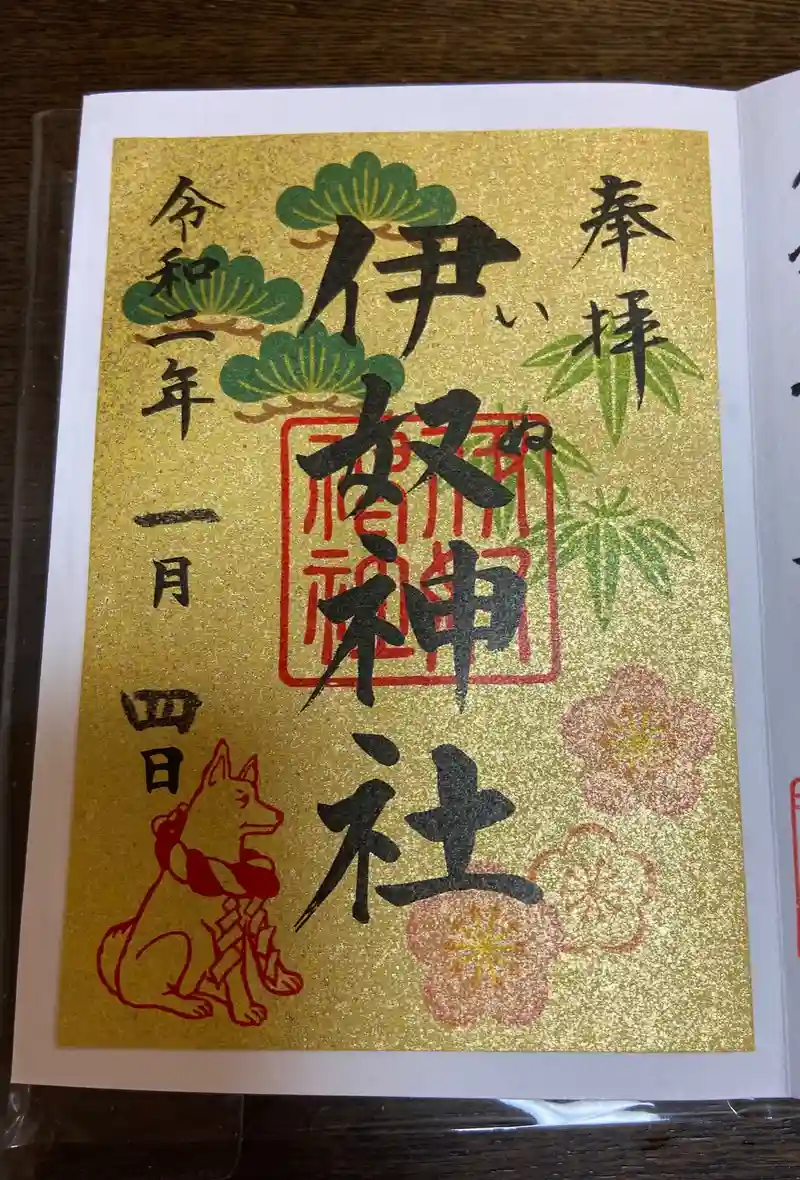 奉拝
伊奴神社
いぬ
令和二年 一月 四日